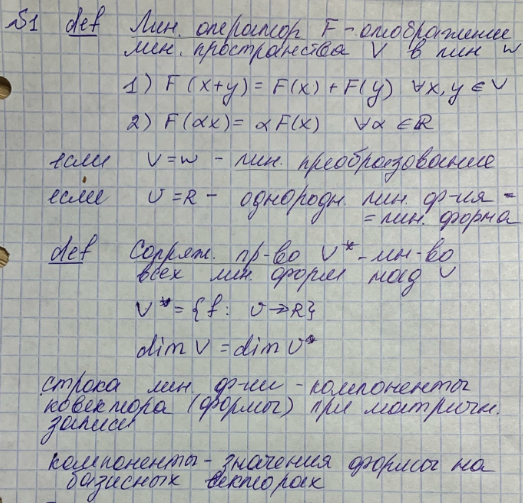 §1 def Лин. оператор F - отображение
лин. пространства V в лин W
1) F(x+y) = F(x) + F(y) ∀x,y ∈ V
2) F(αx) = αF(x) ∀α ∈ R
если V=W - лин. преобразование
если V=R - однородн. лин. ф-ия =
= лин. форма
def Сопряж. пр-во V* - мн-во
всех лин. форм над V
V* = {f: V→R}
dim V = dim V*
строка лин. ф-ии - компоненты
ковектора (формы) при матричн.
записи
компоненты - значения формы на
базисных векторах